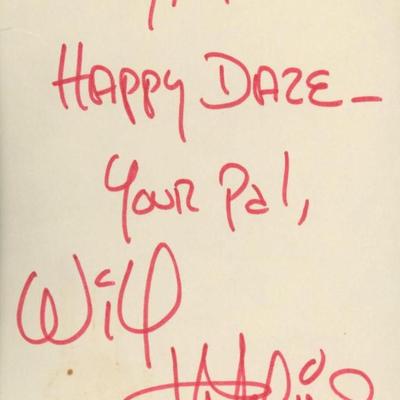 Happy Daze—
Your Pal,
Will